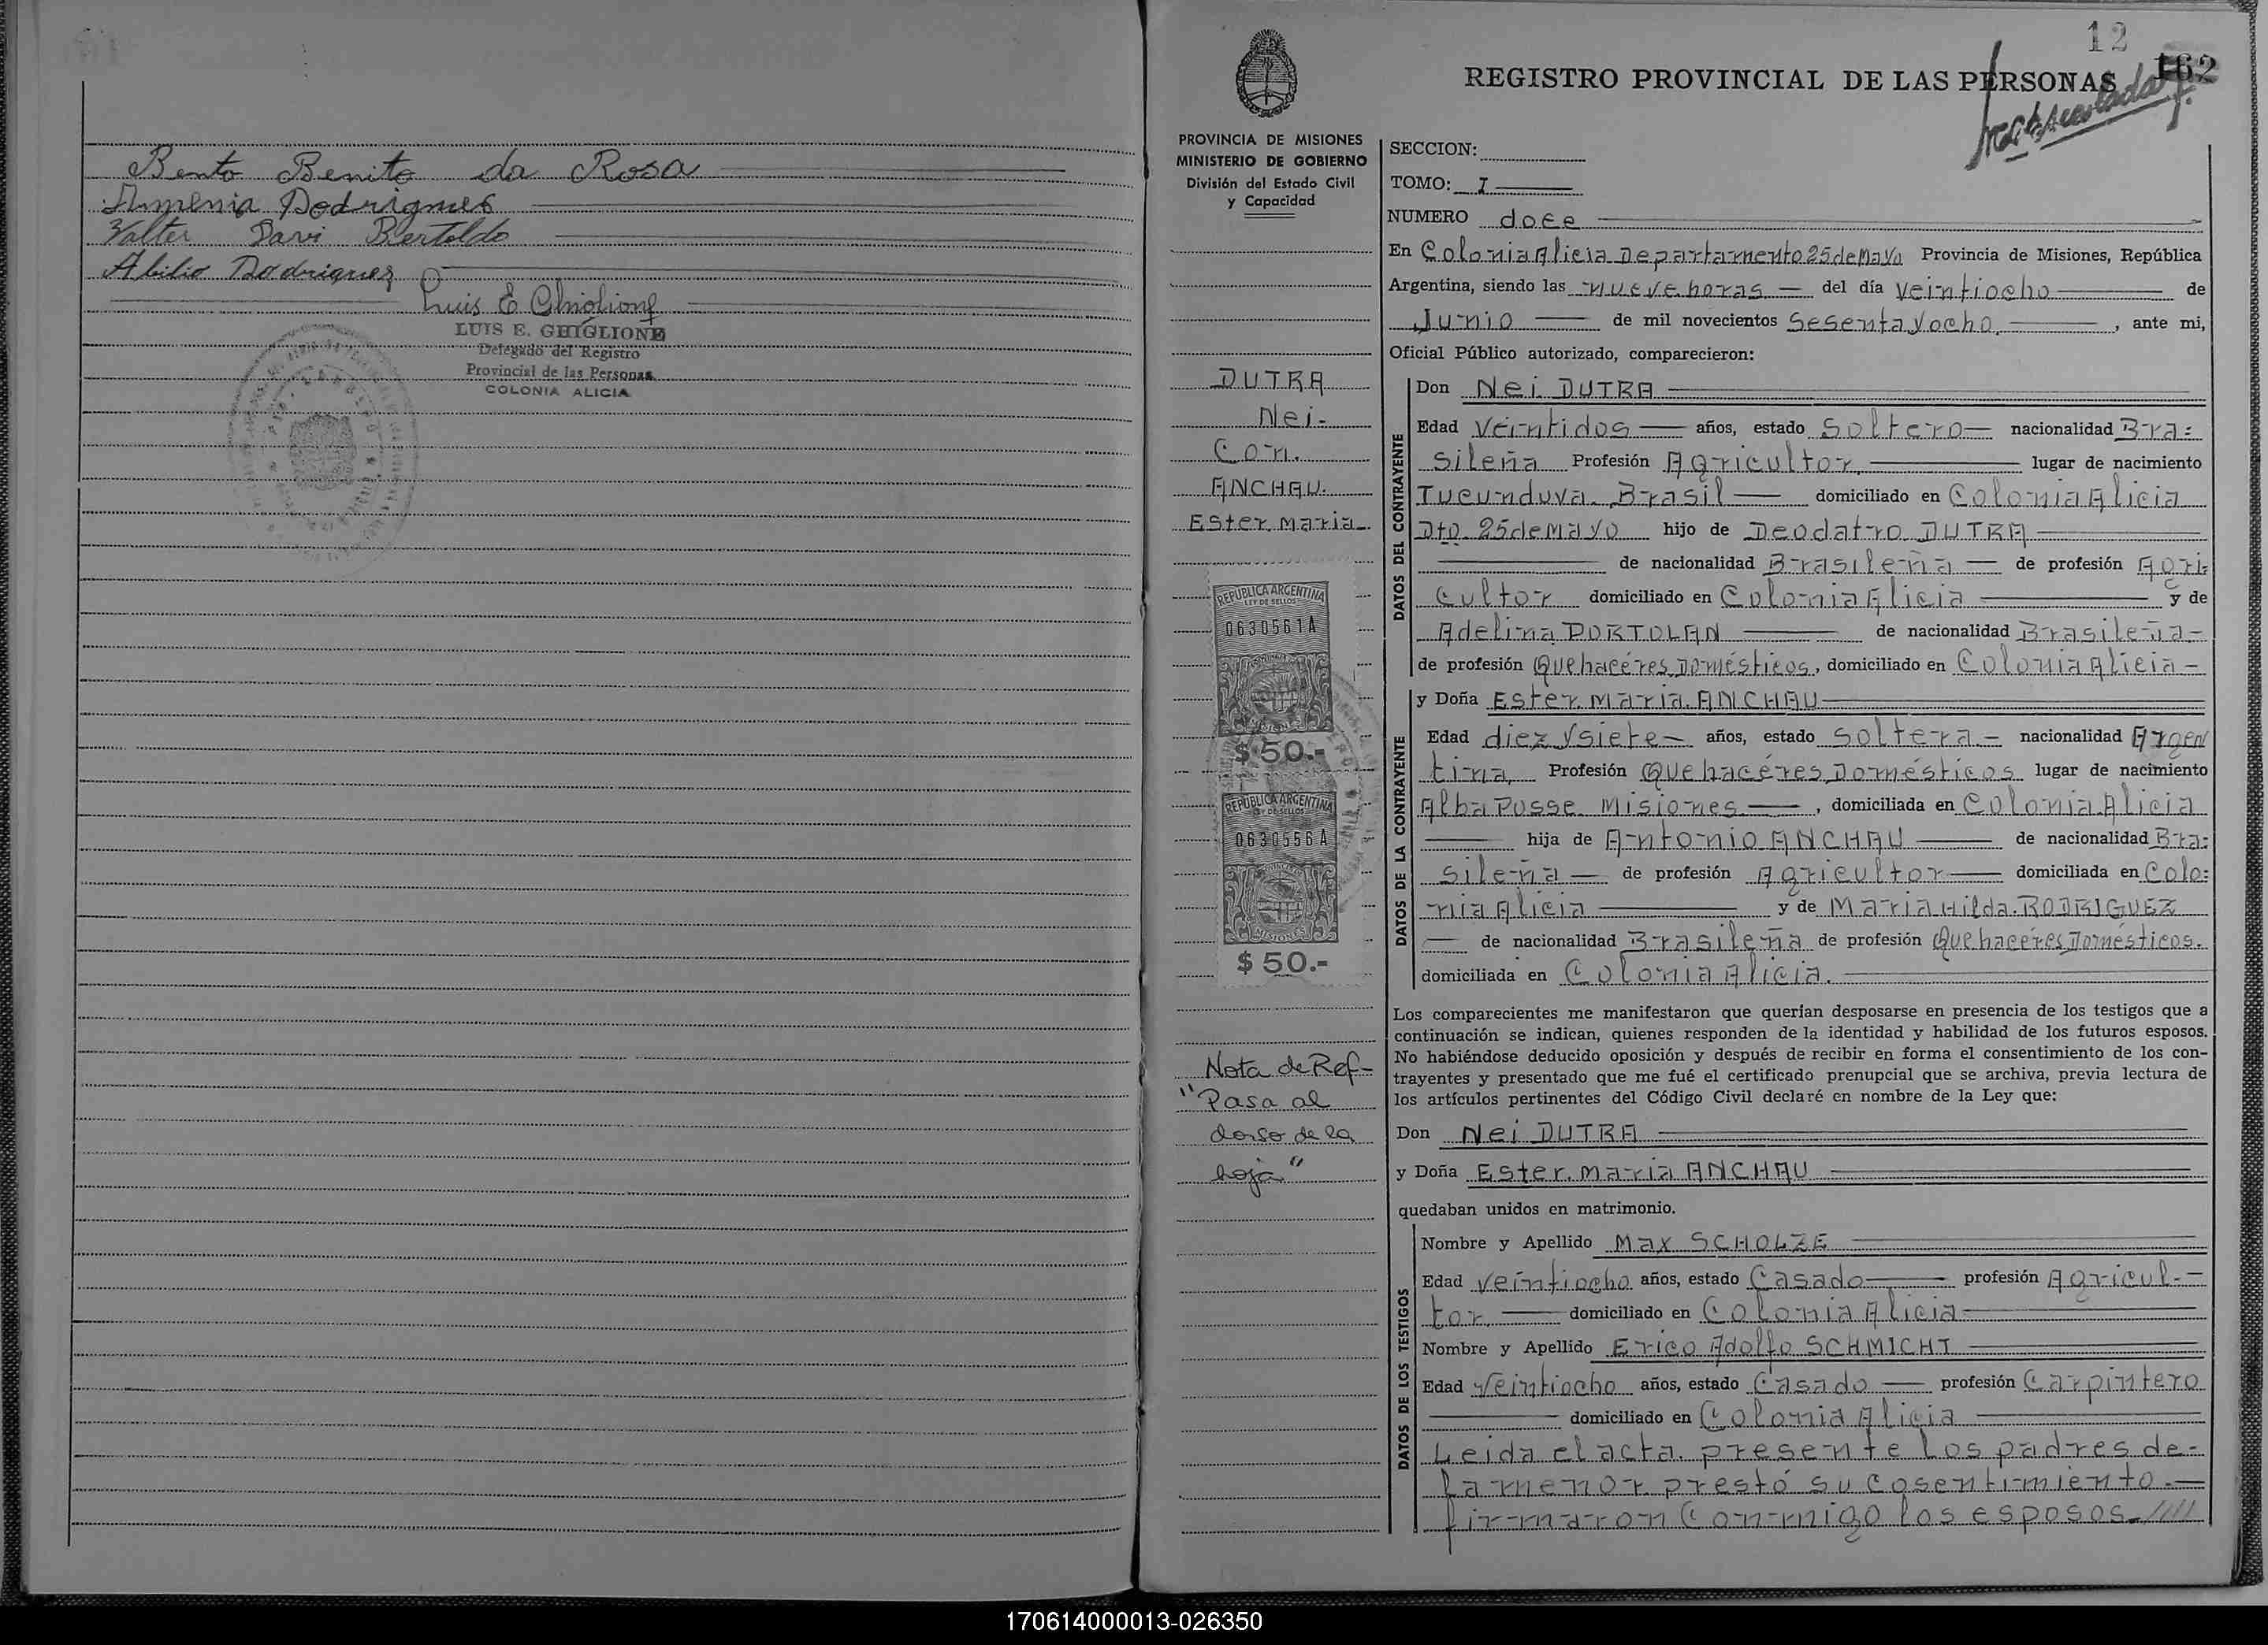 Bento Benito da Rosa
Valter Davi Bertoldo
Abilio Rodriguez
Luis E Ghiglione
LUIS E. GHIGLIONE
Delegado del Registro
Provincial de las Personas
COLONIA ALICIA
12
162
REGISTRO PROVINCIAL DE LAS PERSONAS
PROVINCIA DE MISIONES
MINISTERIO DE GOBIERNO
División del Estado Civil
y Capacidad
DUTRA
Nei-
Con.
ANCHAU.
Ester Maria-
REPUBLICA ARGENTINA
LEY DE SELLOS
0630561A
$ 50.-
REPUBLICA ARGENTINA
LEY DE SELLOS
0630556A
MISIONES
$ 50.-
Nota de Ref-
"Pasa al
dorso de la
hoja"
SECCION:
TOMO: I
NUMERO doce
En Colonia Alicia Departamento 25 de Mayo Provincia de Misiones, República
Argentina, siendo las nueve horas del día veintiocho de
Junio de mil novecientos Sesenta y ocho, ante mi,
Oficial Público autorizado, comparecieron:
DATOS DEL CONTRAYENTE
Don Nei DUTRA
Edad Veintidos años, estado Soltero nacionalidad Bra=
sileña Profesión Agricultor, lugar de nacimiento
Tucunduva. Brasil domiciliado en Colonia Alicia
Dto. 25 de Mayo hijo de Deodatro DUTRA
de nacionalidad Brasileña de profesión Agri=
cultor domiciliado en Colonia Alicia y de
Adelina PORTOLAN de nacionalidad Brasileña-
de profesión Quehacéres Domésticos, domiciliado en Colonia Alicia-
DATOS DE LA CONTRAYENTE
y Doña Ester Maria ANCHAU
Edad diez y siete- años, estado Soltera.- nacionalidad Argen
tina, Profesión Quehacéres Domésticos lugar de nacimiento
Alba Posse Misiones, domiciliada en Colonia Alicia
hija de Antonio ANCHAU de nacionalidad Bra=
sileña de profesión Agricultor domiciliada en Colo=
nia Alicia y de Maria Hilda RODRIGUEZ
de nacionalidad Brasileña de profesión Quehacéres Domésticos.
domiciliada en Colonia Alicia.
Los comparecientes me manifestaron que querían desposarse en presencia de los testigos que a
continuación se indican, quienes responden de la identidad y habilidad de los futuros esposos.
No habiéndose deducido oposición y después de recibir en forma el consentimiento de los con-
trayentes y presentado que me fué el certificado prenupcial que se archiva, previa lectura de
los artículos pertinentes del Código Civil declaré en nombre de la Ley que:
Don Nei DUTRA
y Doña Ester Maria ANCHAU
quedaban unidos en matrimonio.
DATOS DE LOS TESTIGOS
Nombre y Apellido Max SCHOLZE
Edad veintiocho años, estado Casado profesión Agricul.-
tor. domiciliado en Colonia Alicia
Nombre y Apellido Erico Adolfo SCHMICHT
Edad Veintiocho años, estado Casado profesión Carpintero
domiciliado en Colonia Alicia
Leida el acta. presente los padres de-
la menor prestó su cosentimiento.-
firmaron Conmigo los esposos.-////
170614000013-026350